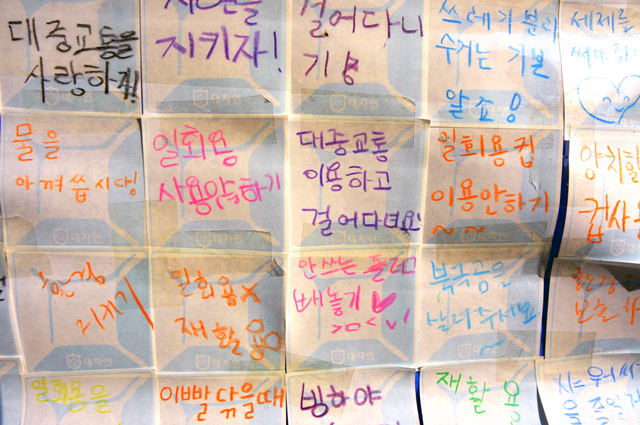 대중교통을
사랑하자!
지키자!
걸어다니
기
쓰레기 분리
수거는 기본
알죠
세제를
물을
아껴씁시다!
일회용
사용안하기
대중교통
이용하고
걸어다녀요
일회용 컵
이용안하기
~ ~
양치할
컵사용
지키기
일회용X
재활용O
안쓰는 플러그
빼놓기 ♥
>o<
북극곰을
살려주세요
~
일회용을
이빨 닦을때
빙하야
재활용
샤워
대자연
대자연
대자연
대자연
대자연
대자연
대자연